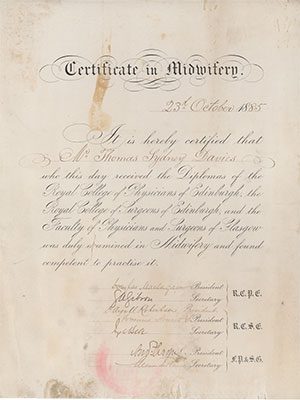 Certificate in Midwifery.
23d October 1885
It is hereby certified that
Mr Thomas Sydney Davies
who this day received the Diplomas of the
Royal College of Physicians of Edinburgh, the
Royal College of Surgeons of Edinburgh, and the
Faculty of Physicians and Surgeons of Glasgow
was duly examined in Midwifery and found
competent to practise it.
President
Secretary
R.C.P.E.
President
Secretary
R.C.S.E.
President
Secretary
F.P.&S.G.